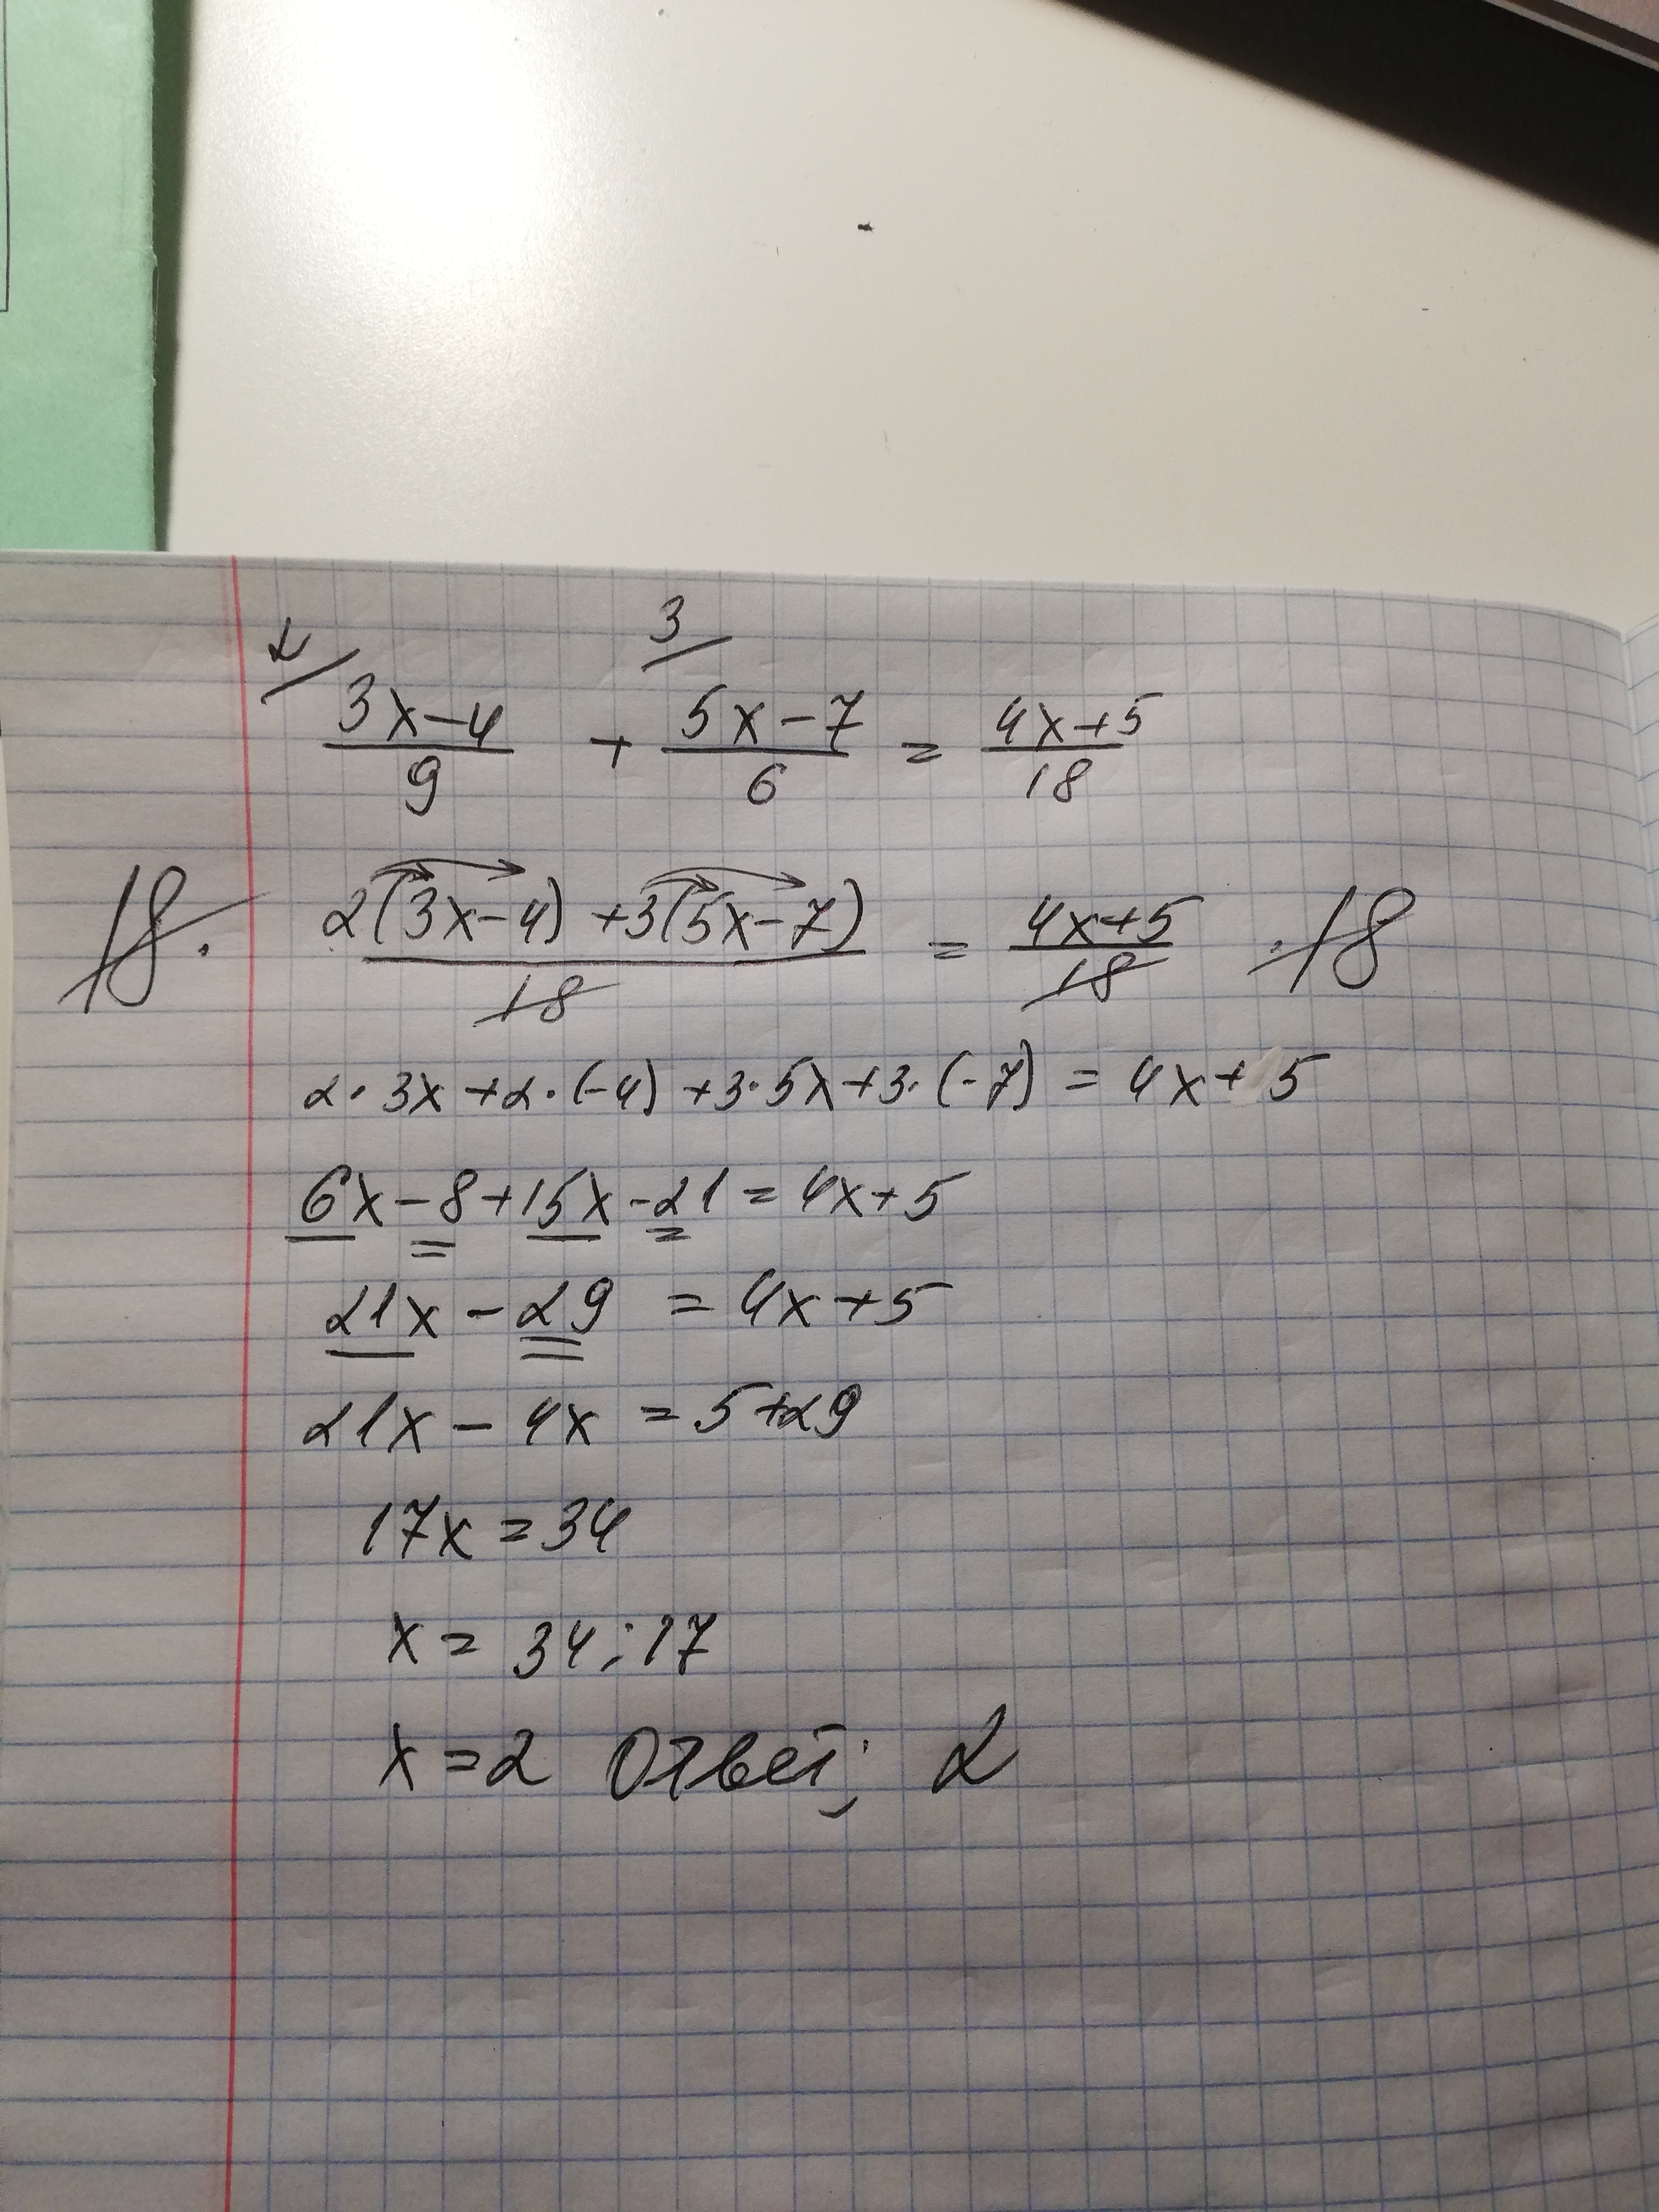 2/ 3/
(3x-4)/9 + (5x-7)/6 = (4x+5)/18
18· (2(3x-4)+3(5x-7))/18 = (4x+5)/18 ·18
2·3x+2·(-4)+3·5x+3·(-7)=4x+5
6x-8+15x-21=4x+5
21x-29=4x+5
21x-4x=5+29
17x=34
x=34:17
x=2 Ответ: 2